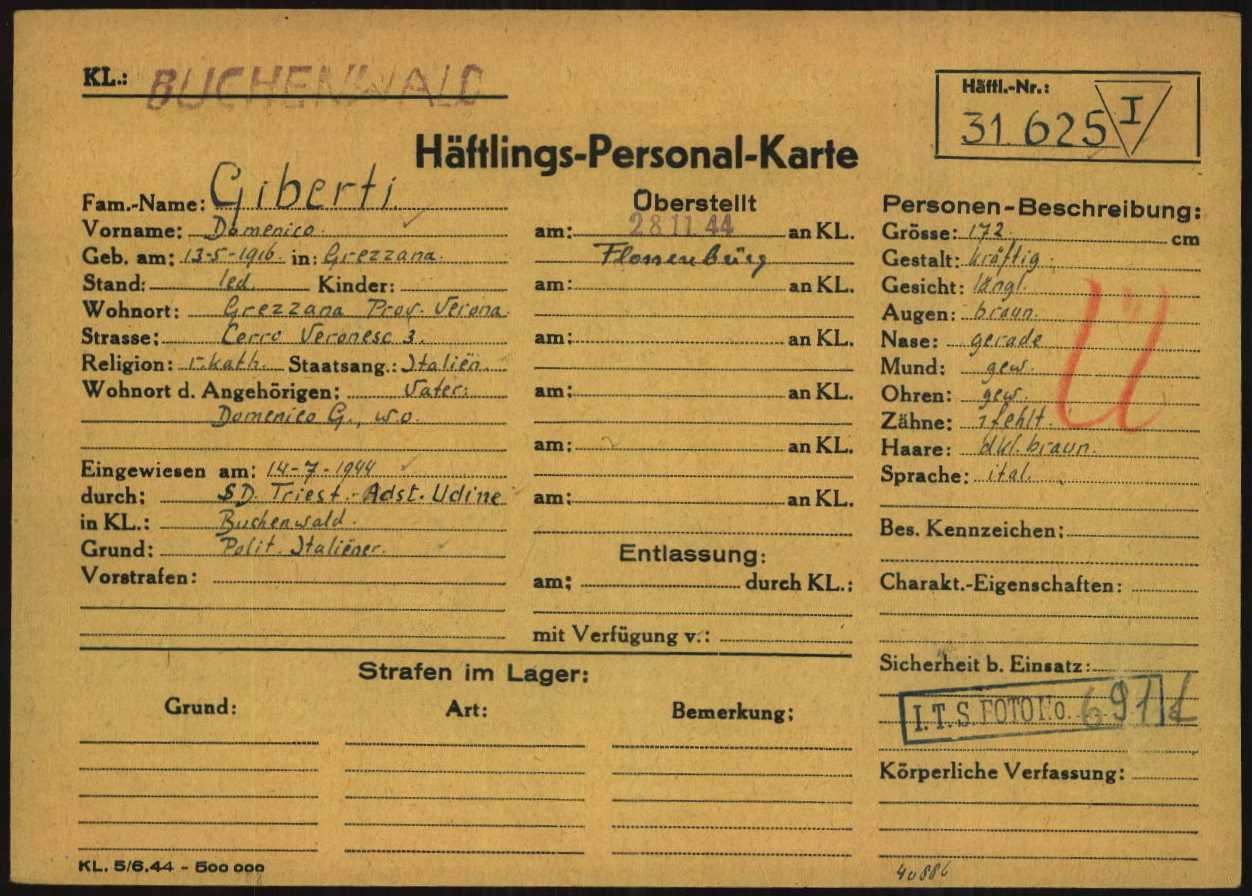 KL.: BUCHENWALD
Häftl.-Nr.:
31 625 I
Häftlings-Personal-Karte
Fam.-Name: Giberti
Vorname: Domenico
Geb. am: 13-5-1916 in: Grezzana
Stand: led. Kinder:
Wohnort: Grezzana Prov. Verona
Strasse: Cerro Veronesc 3.
Religion: r.kath. Staatsang.: Italien.
Wohnort d. Angehörigen: Vater:
Domenico G., w.o.
Eingewiesen am: 14-7-1944
durch: SD. Triest - Adst. Udine
in KL.: Buchenwald.
Grund: Polit. Italiener.
Vorstrafen:
Überstellt
am: 28 11 44 an KL.
Flossenbürg
am: an KL.
am: an KL.
am: an KL.
am: an KL.
am: an KL.
Entlassung:
am: durch KL.:
mit Verfügung v.:
Personen-Beschreibung:
Grösse: 172 cm
Gestalt: kräftig
Gesicht: längl.
Augen: braun.
Nase: gerade
Mund: gew.
Ohren: gew.
Zähne: 1 fehlt.
Haare: dkl. braun.
Sprache: ital.
Ü
Bes. Kennzeichen:
Charakt.-Eigenschaften:
Sicherheit b. Einsatz:
I.T.S. FOTO No. 691
Körperliche Verfassung:
Strafen im Lager:
Grund: Art: Bemerkung:
KL. 5/6.44 - 500 000